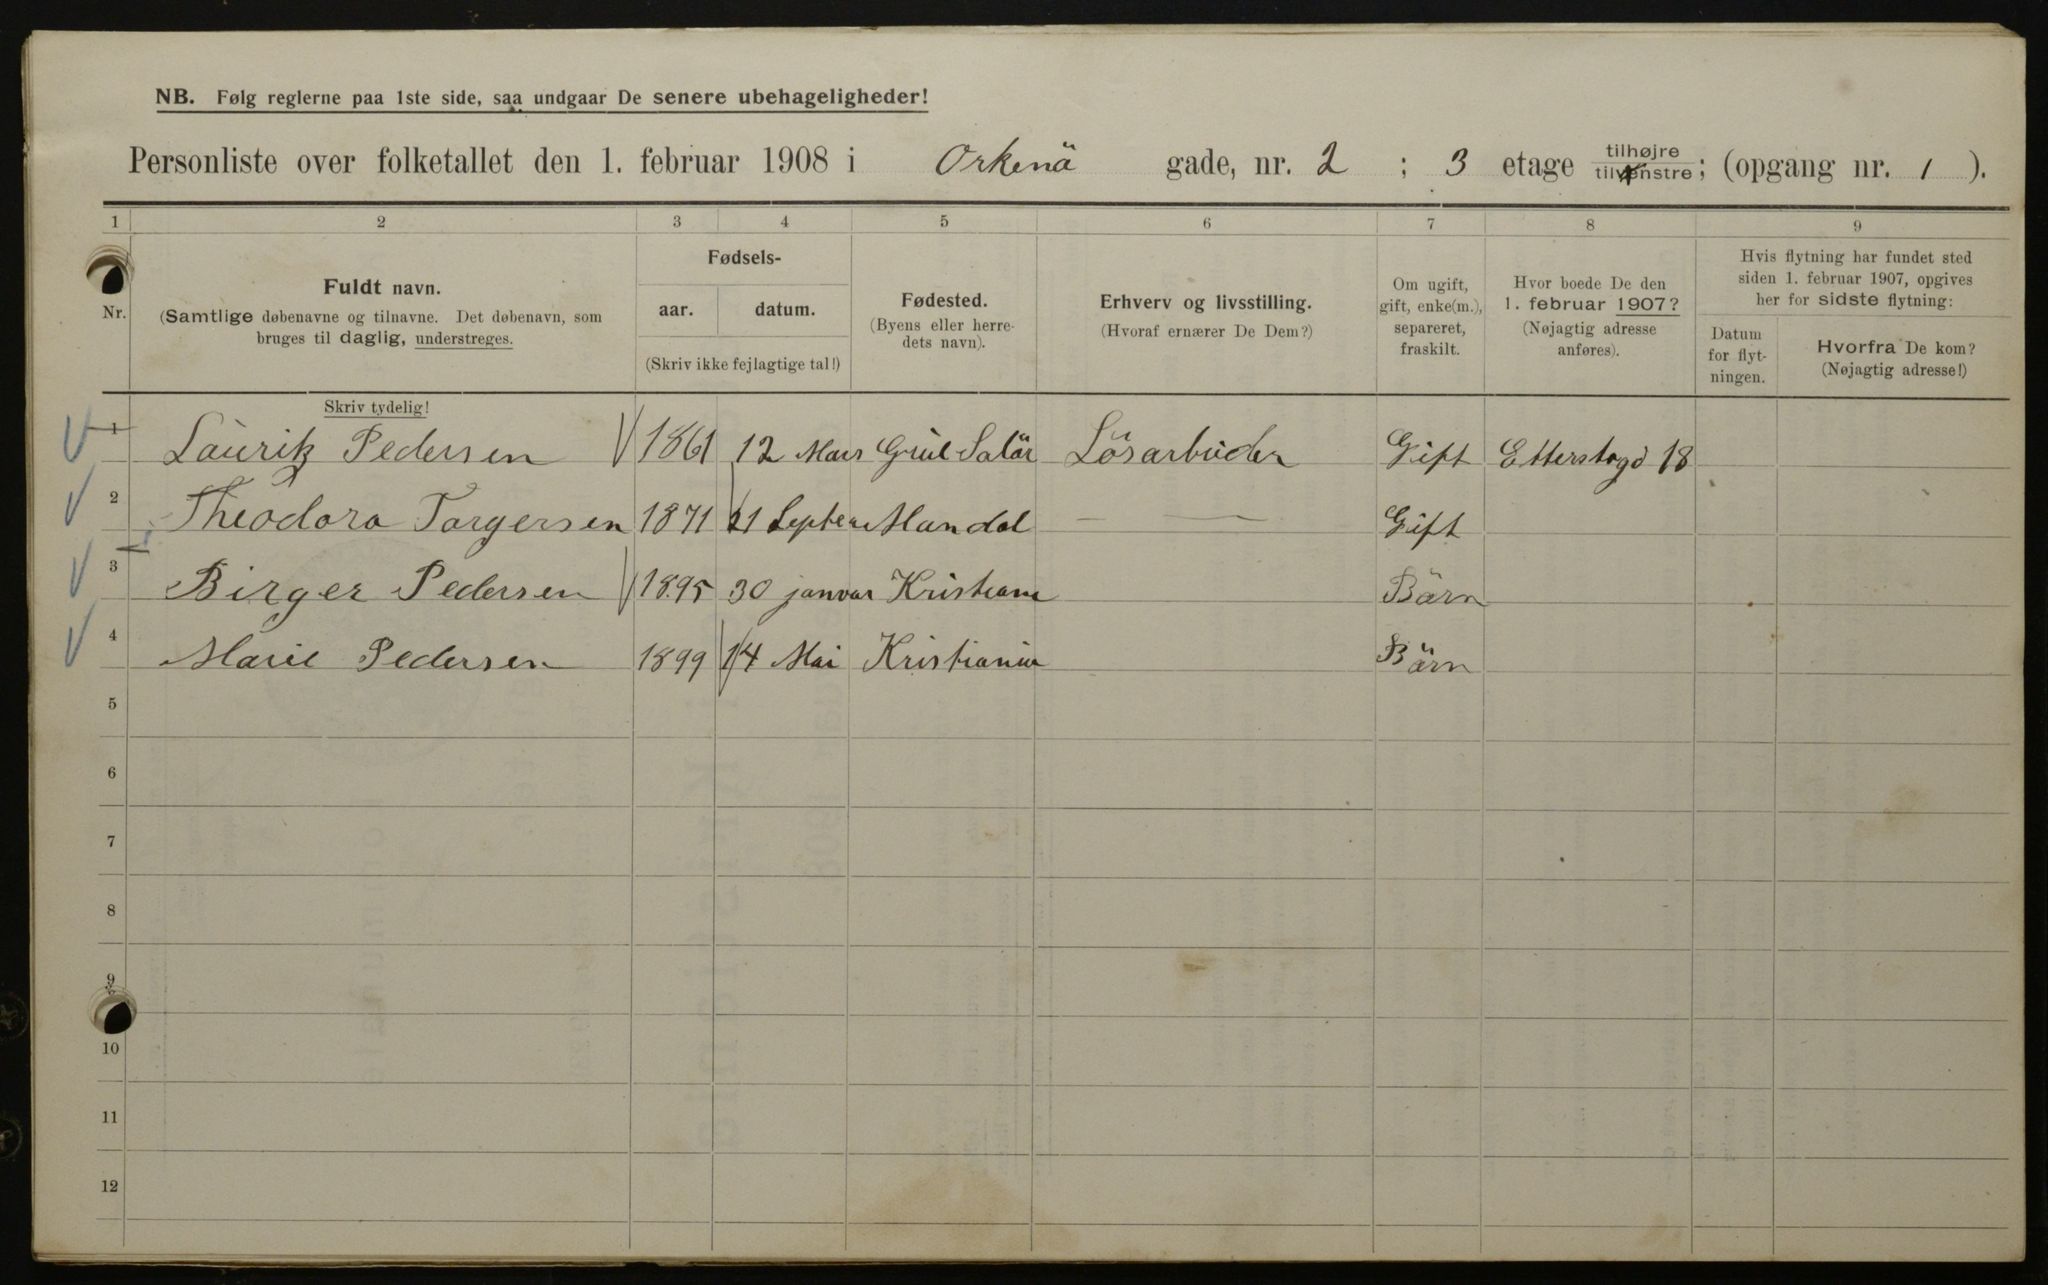 NB. Følg reglerne paa 1ste side, saa undgaar De senere ubehageligheder!
Personliste over folketallet den 1. februar 1908 i Orkenä gade, nr. 2 ; 3 etage tilhøjre/tilvenstre; (opgang nr. 1 ).
1 2 3 4 5 6 7 8 9
Nr.
Fuldt navn.
(Samtlige døbenavne og tilnavne. Det døbenavn, som
bruges til daglig, understreges.
Skriv tydelig!
Fødsels-
aar. datum.
(Skriv ikke fejlagtige tal!)
Fødested.
(Byens eller herre-
dets navn).
Erhverv og livsstilling.
(Hvoraf ernærer De Dem?)
Om ugift,
gift, enke(m.),
separeret,
fraskilt.
Hvor boede De den
1. februar 1907?
(Nøjagtig adresse
anføres).
Hvis flytning har fundet sted
siden 1. februar 1907, opgives
her for sidste flytning:
Datum
for flyt-
ningen.
Hvorfra De kom?
(Nøjagtig adresse!)
1 Laüritz Pedersen 1861 12 Mars Grüe Solör Lösarbüder Gift Etterstagd 18
2 Theodora Torgersen 1871 21 Septem Mandal — — Gift
3 Birger Pedersen 1895 30 janvar Kristiania Bärn
4 Marie Pedersen 1899 14 Mai Kristiania Bärn
5
6
7
8
9
10
11
12